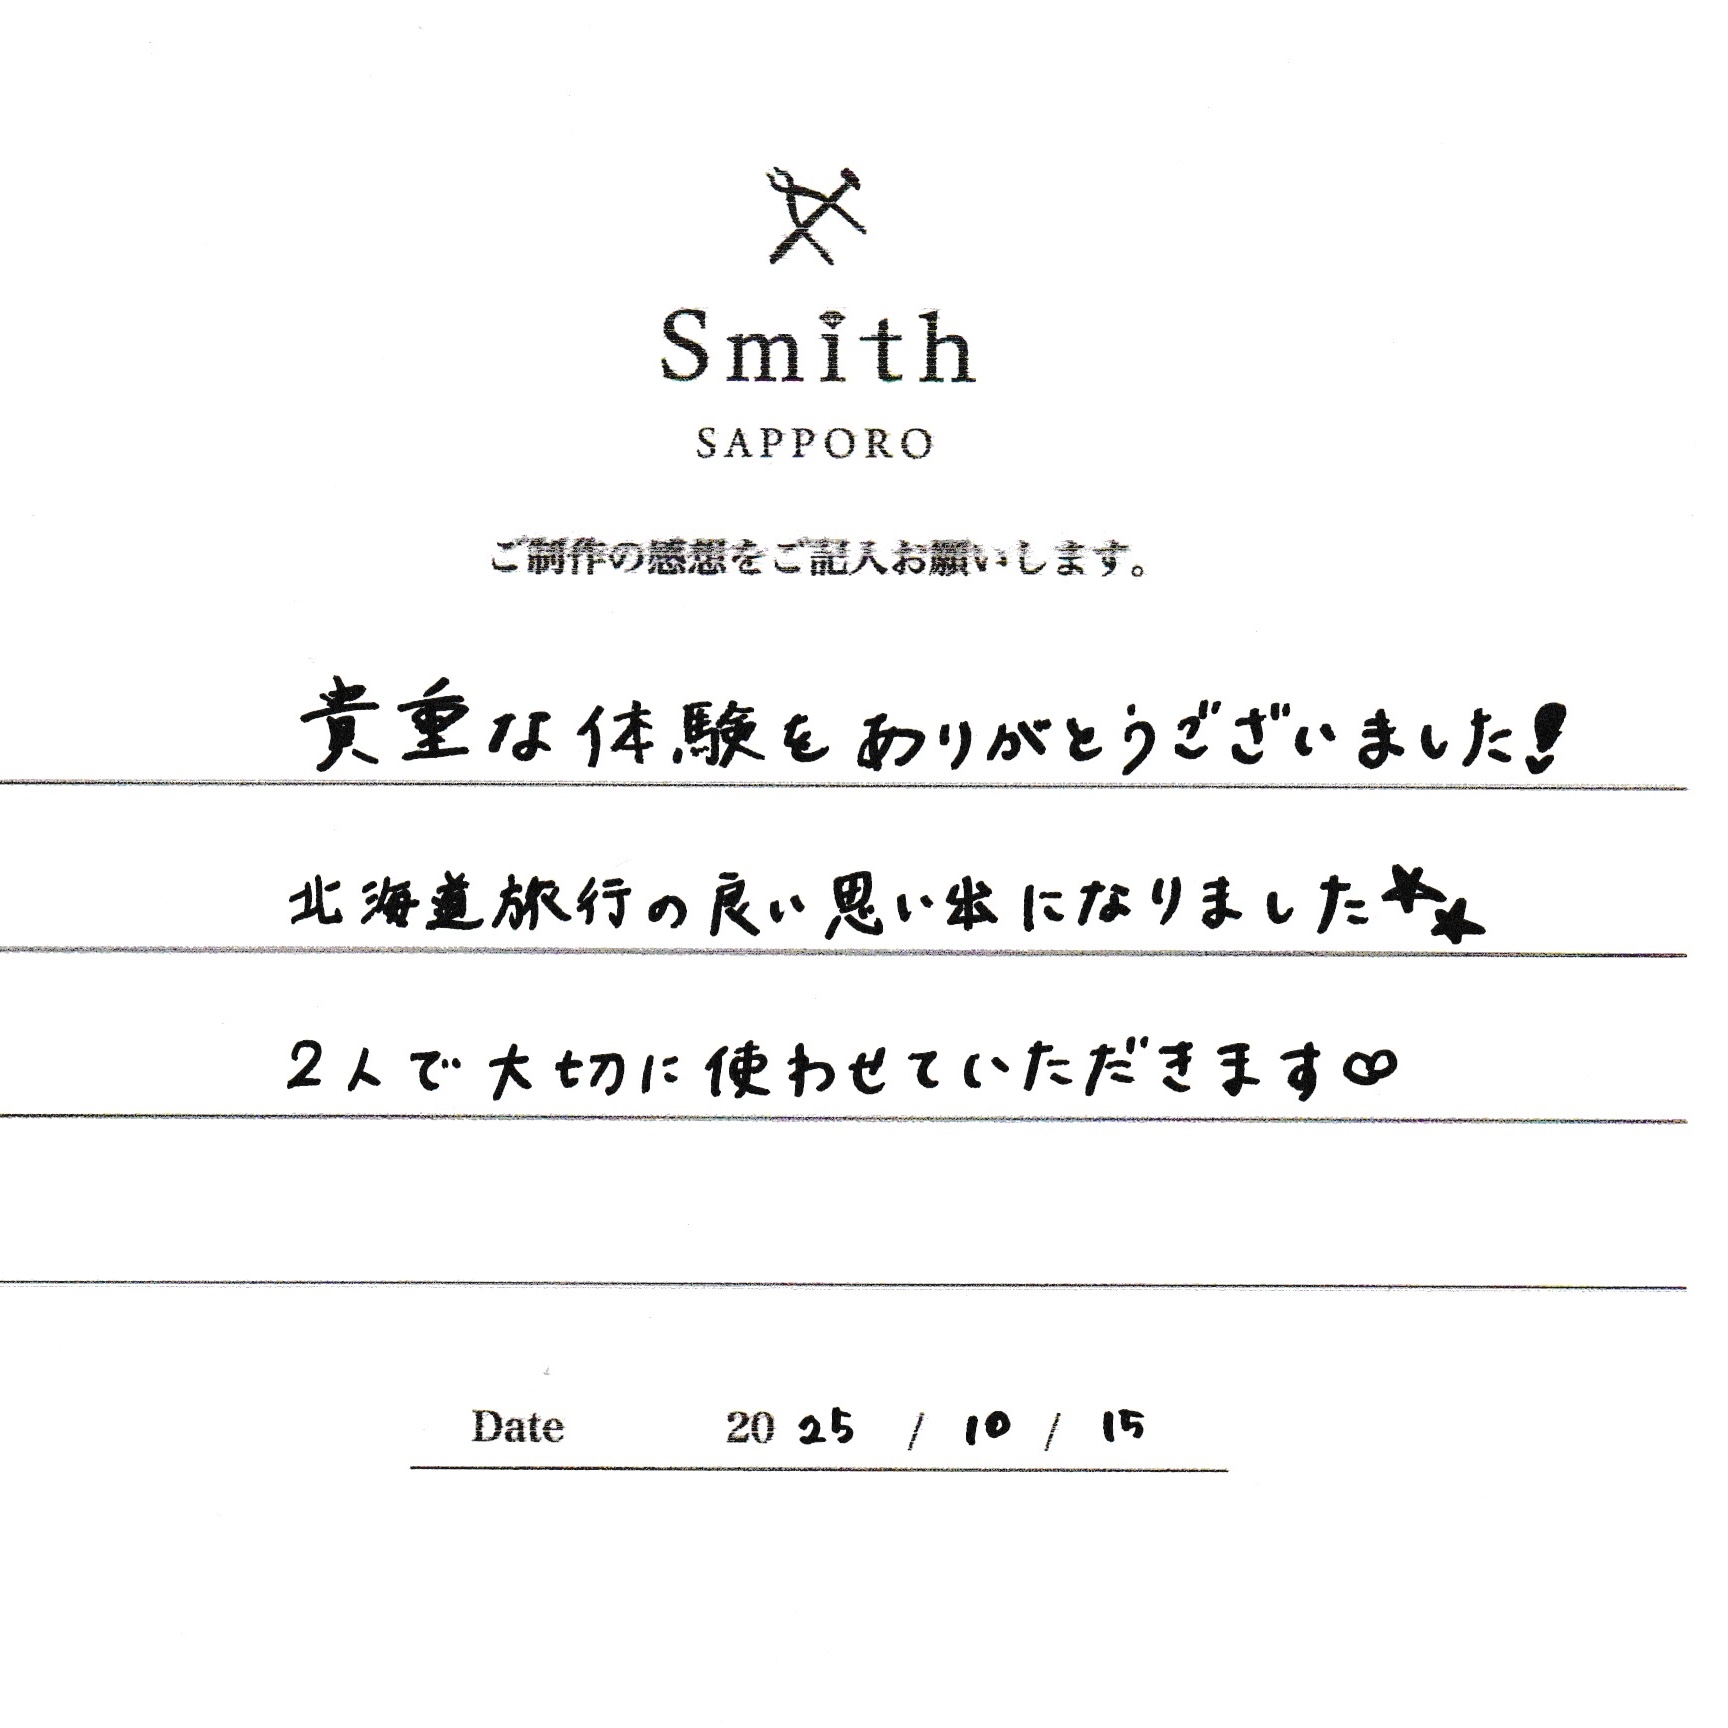 Smith
SAPPORO
ご制作の感想をご記入お願いします。
貴重な体験をありがとうございました!
北海道旅行の良い思い出になりました★★
2人で大切に使わせていただきます∞
Date 2025 / 10 / 15